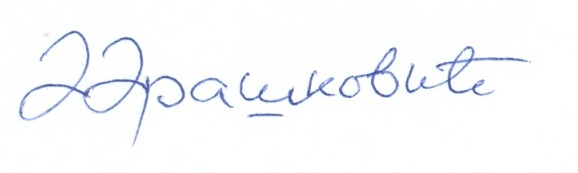 Д Драшковић